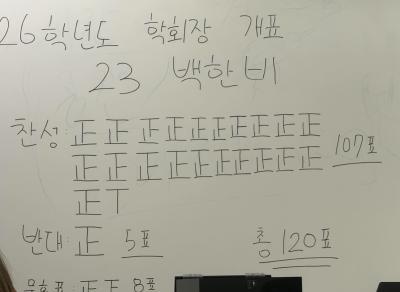 26학년도 학회장 개표
23 백한비
찬성: 正正正正正正正正正正
正正正正正正正正正正 107표
正丅
반대: 正 5표 총 120표
무효표: 8표